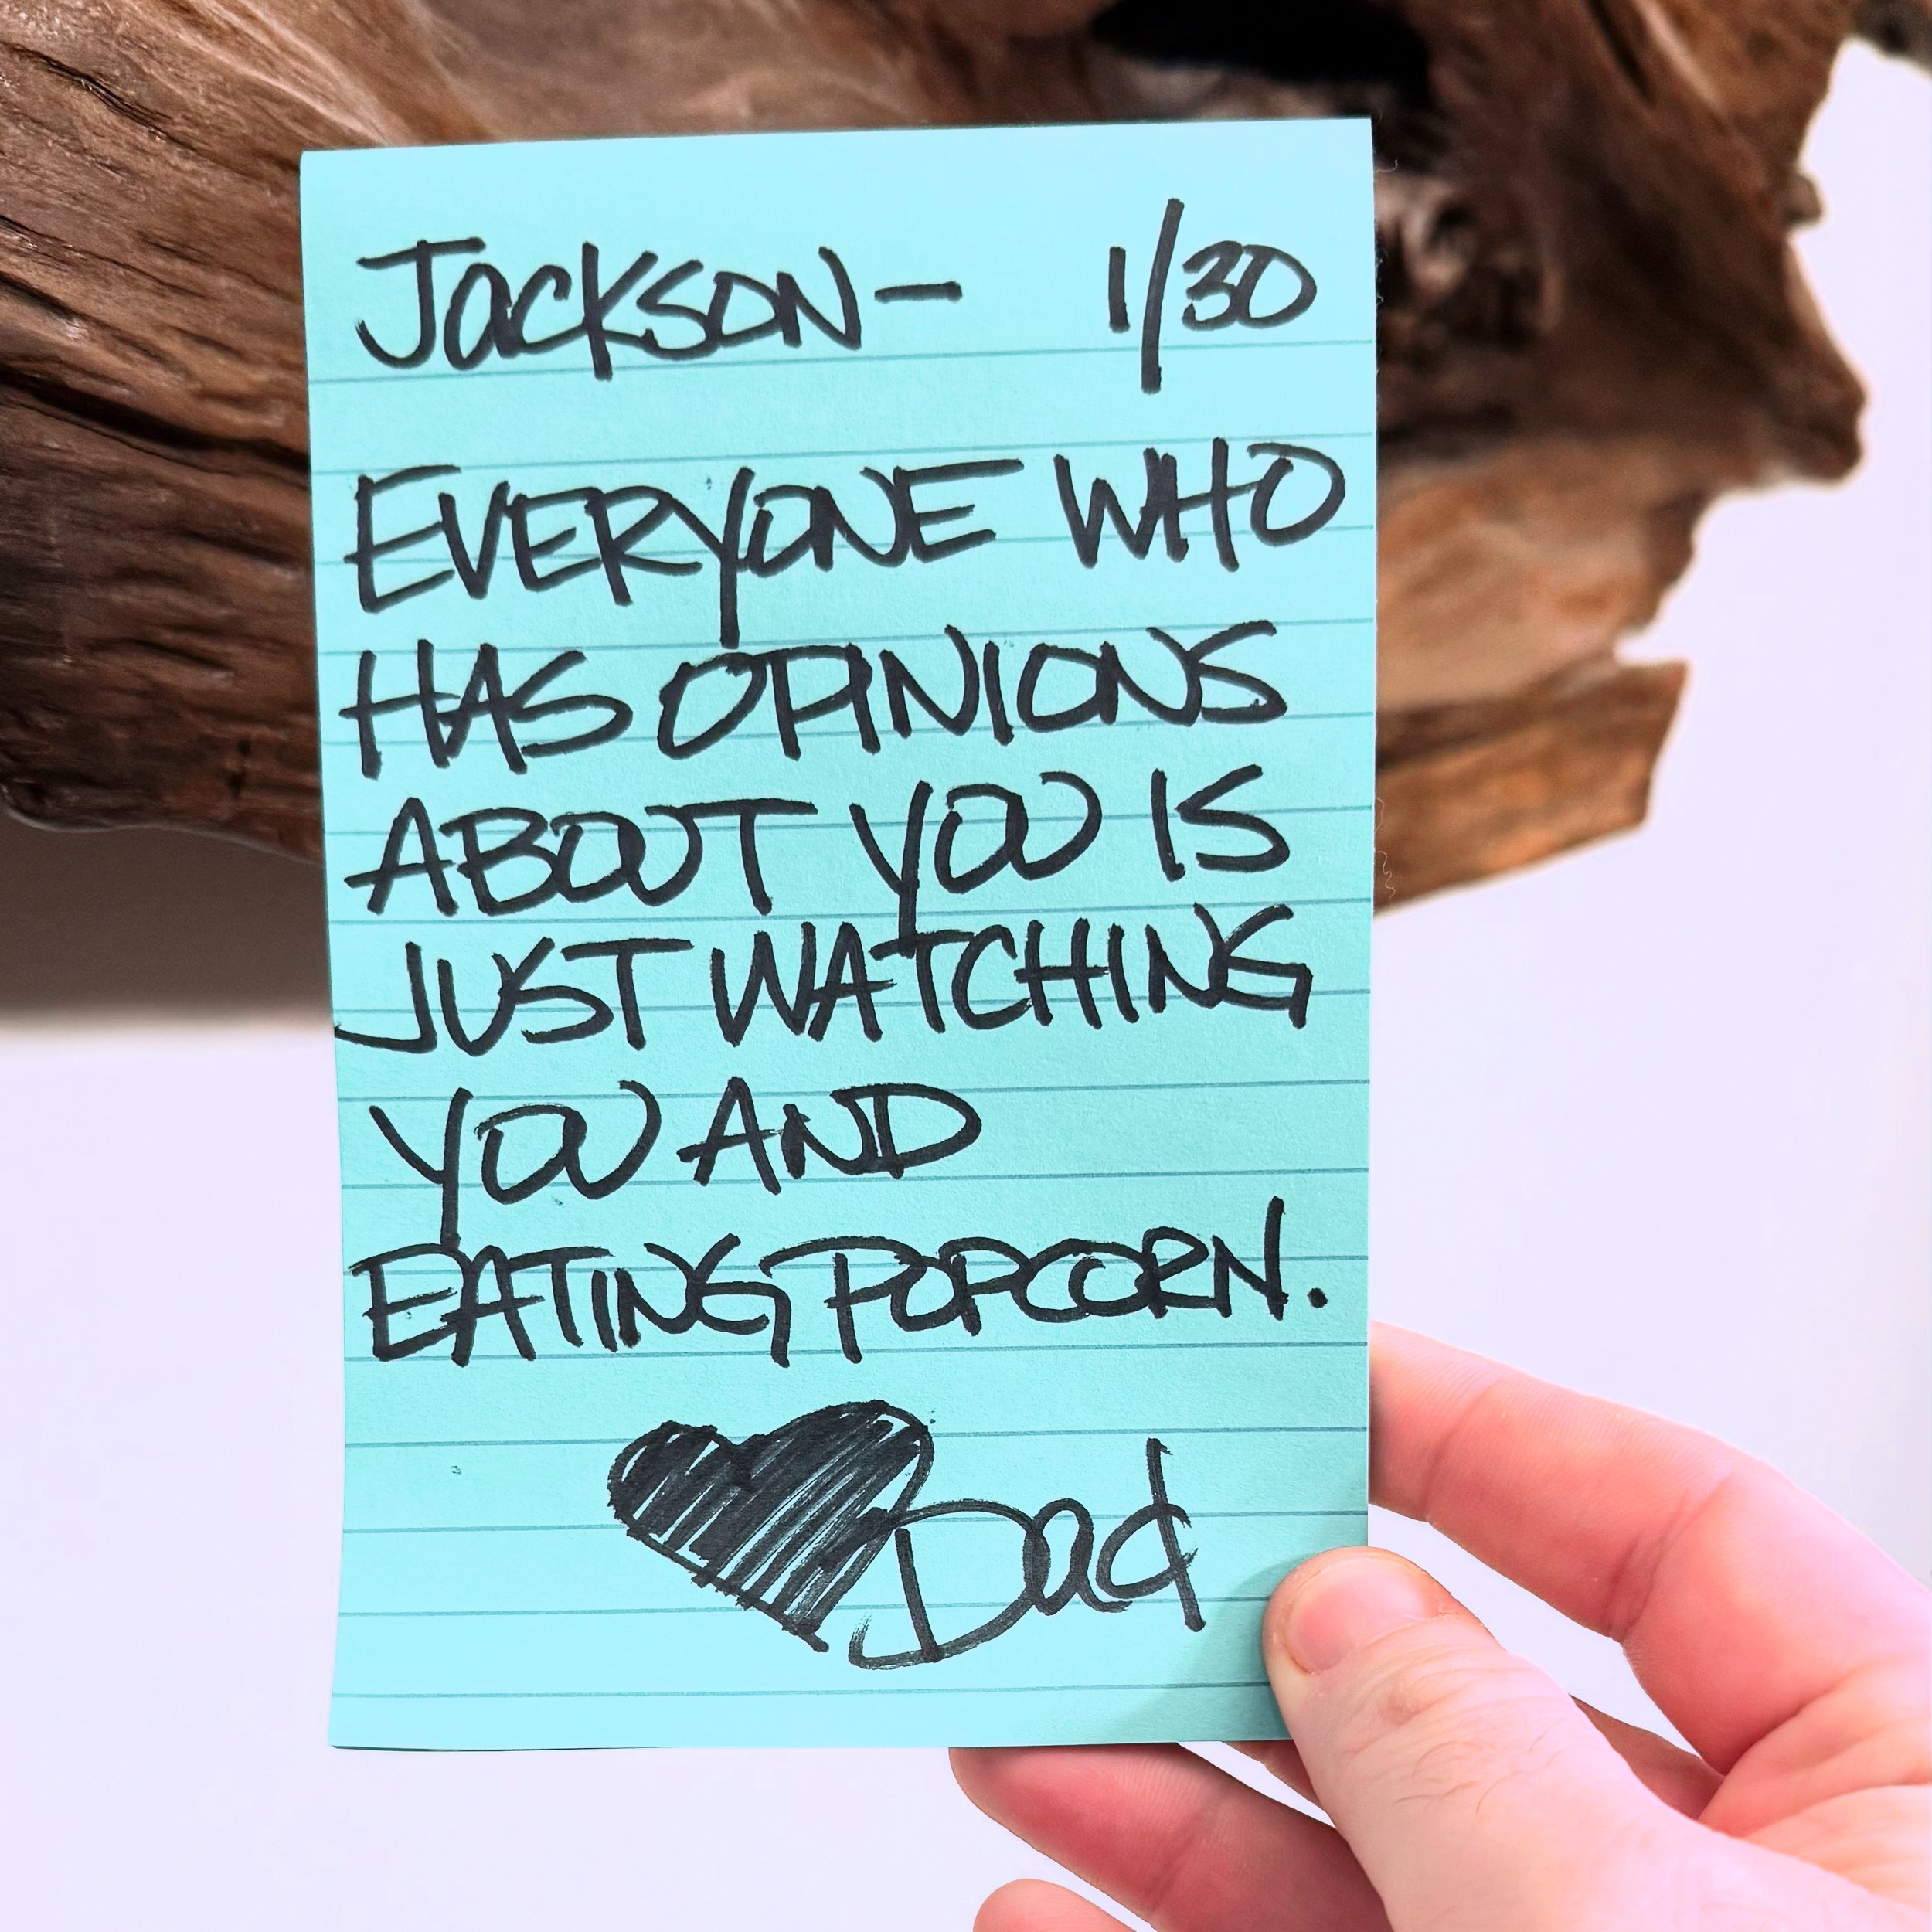 Jackson— 1/30
EVERYONE WHO
HAS OPINIONS
ABOUT YOU IS
JUST WATCHING
YOU AND
EATING POPCORN.
Dad